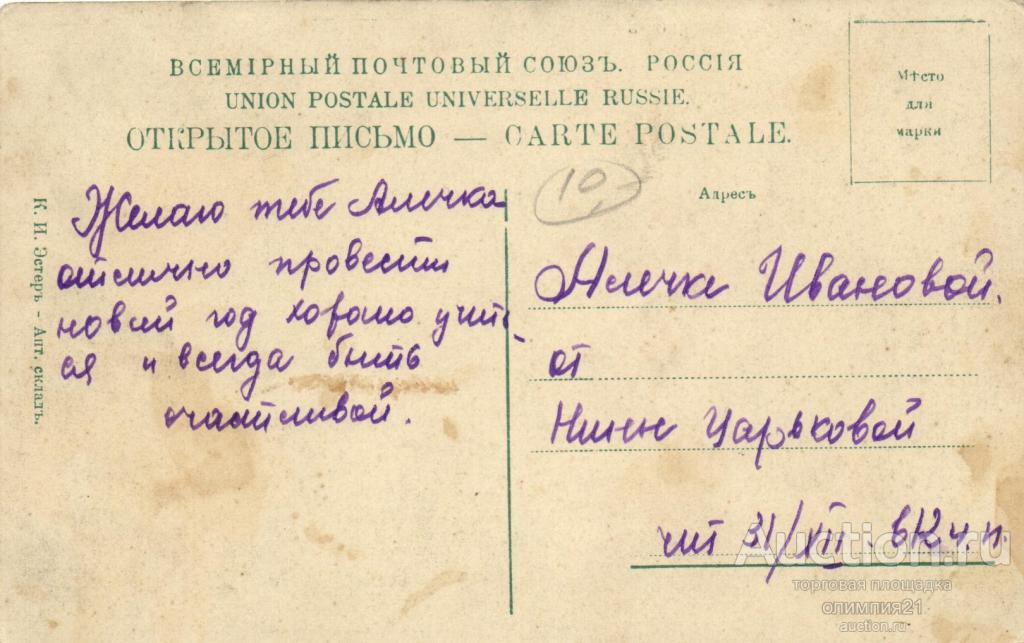 ВСЕМІРНЫЙ ПОЧТОВЫЙ СОЮЗЪ. РОССІЯ
UNION POSTALE UNIVERSELLE RUSSIE.
ОТКРЫТОЕ ПИСЬМО — CARTE POSTALE.
Мѣсто
для
марки
К. И. Эстеръ - Апт. складъ.
Желаю тебе Алечка
отлично провести
новый год хорошо учить
ся и всегда быть
счастливой.
10
Адресъ
Алечке Ивановой.
от
Нины Царьковой
31/XII. в 12 ч. н.
Auction.ru
торговая площадка
олимпия21
auction.ru